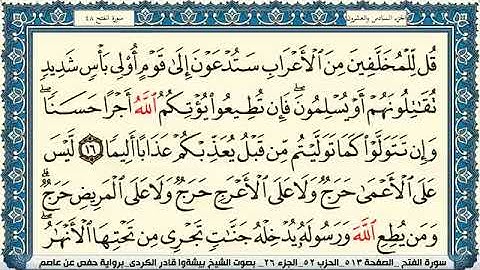 الجزء السادس والعشرون سورة الفتح ٤٨
قُل لِّلْمُخَلَّفِينَ مِنَ ٱلْأَعْرَابِ سَتُدْعَوْنَ إِلَىٰ قَوْمٍ أُو۟لِى بَأْسٍ شَدِيدٍ
تُقَـٰتِلُونَهُمْ أَوْ يُسْلِمُونَ ۖ فَإِن تُطِيعُوا۟ يُؤْتِكُمُ ٱللَّهُ أَجْرًا حَسَنًا ۖ
وَإِن تَتَوَلَّوْا۟ كَمَا تَوَلَّيْتُم مِّن قَبْلُ يُعَذِّبْكُمْ عَذَابًا أَلِيمًا ١٦ لَّيْسَ
عَلَى ٱلْأَعْمَىٰ حَرَجٌ وَلَا عَلَى ٱلْأَعْرَجِ حَرَجٌ وَلَا عَلَى ٱلْمَرِيضِ حَرَجٌ ۗ
وَمَن يُطِعِ ٱللَّهَ وَرَسُولَهُۥ يُدْخِلْهُ جَنَّـٰتٍ تَجْرِى مِن تَحْتِهَا ٱلْأَنْهَـٰرُ ۖ
سورة الفتح _ الصفحة ٥١٣ _ الحزب ٥٢ _ الجزء ٢٦ _ بصوت الشيخ بيشةوا قادر الكردى _ برواية حفص عن عاصم